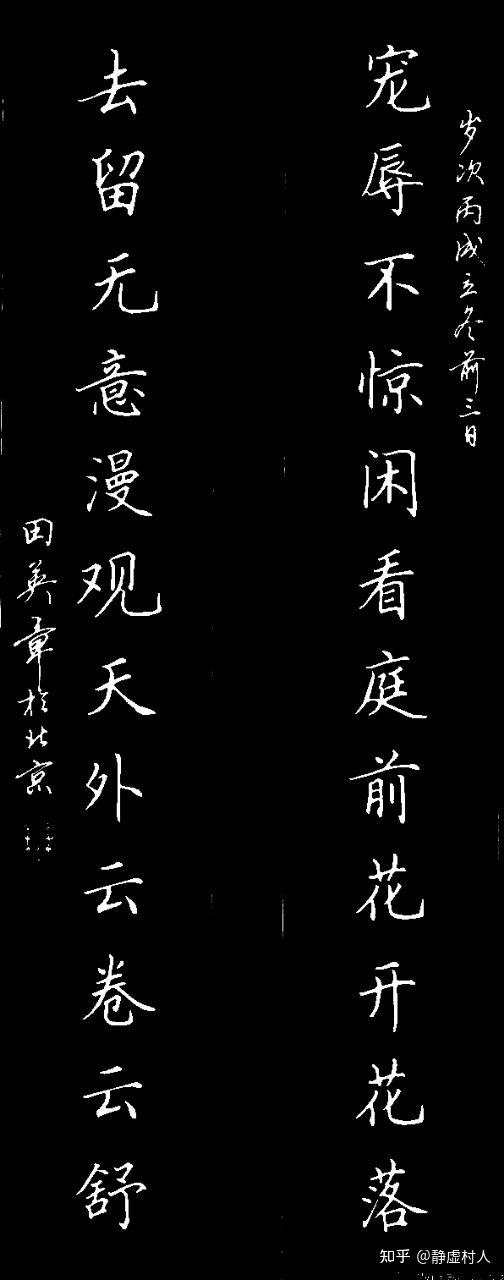 岁次丙戌立冬前三日
宠辱不惊闲看庭前花开花落
去留无意漫观天外云卷云舒
田英章于北京
知乎 @静虚村人